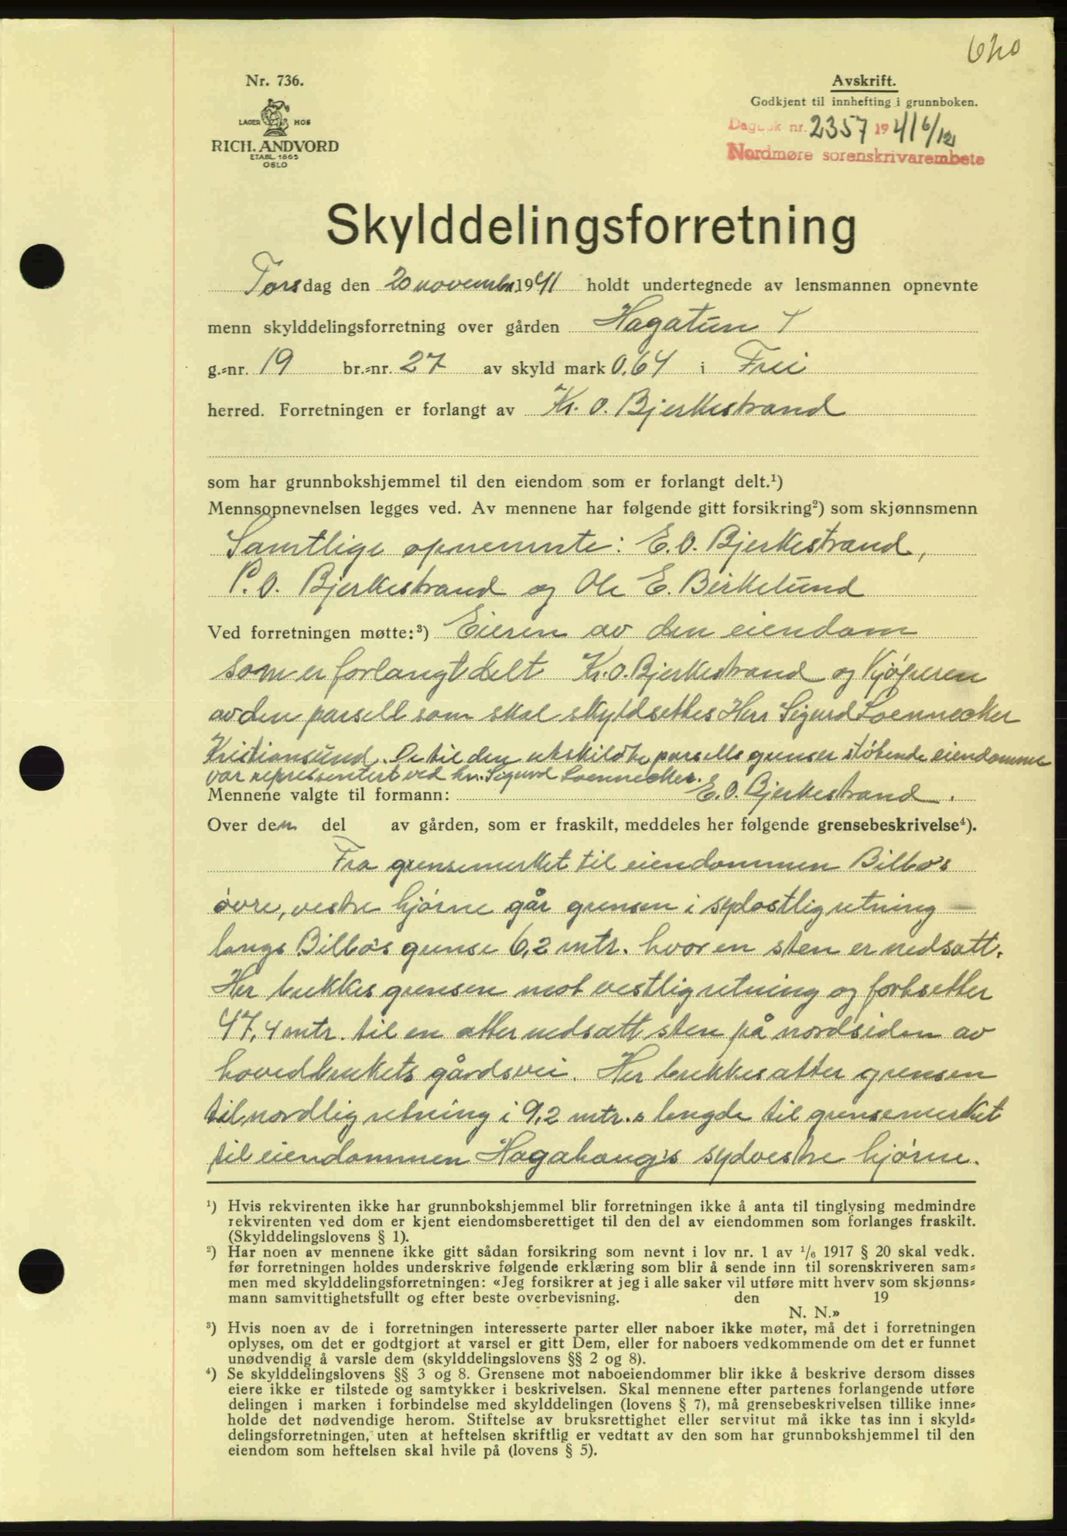 620
Nr. 736.
LAGER HOS
RICH. ANDVORD
ETABL. 1865
OSLO
Avskrift.
Godkjent til innhefting i grunnboken.
Dagbok nr. 2357 1941 6/12
Nordmøre sorenskrivarembete
Skylddelingsforretning
Torsdag den 20 november 1941 holdt undertegnede av lensmannen opnevnte
menn skylddelingsforretning over gården Hagatun I
g.-nr. 19 br.-nr. 27 av skyld mark 0,64 i Frei
herred. Forretningen er forlangt av Kr. O. Bjerkestrand
som har grunnbokshjemmel til den eiendom som er forlangt delt.¹)
Mennsopnevnelsen legges ved. Av mennene har følgende gitt forsikring²) som skjønnsmenn
Samtlige opnemnte: E. O. Bjerkestrand,
P. O. Bjerkestrand og Ole E. Birkelund
Ved forretningen møtte:³) Eieren av den eiendom
som er forlangt delt Kr. O. Bjerkestrand og Kjøperen
av den parsell som skal skyldsettes Herr Sigurd Loennecker
Kristiansund. De til den utskildte parsells grenser støtende eiendomme
var representert ved hr. Sigurd Loennecker.
Mennene valgte til formann: E. O. Bjerkestrand.
Over den del av gården, som er fraskilt, meddeles her følgende grensebeskrivelse⁴).
Fra grensemerket til eiendommen Bilbo's
øvre, vestre hjørne går grensen i sydøstlig retning
langs Bilbo's grense 6,2 mtr. hvor en sten er nedsatt.
Her brekkes grensen mot vestlig retning og fortsetter
47,4 mtr. til en atter nedsatt sten på nordsiden av
hovedbrukets gårdsvei. Her brekkes atter grensen
til nordlig retning i 9,2 mtr.s lengde til grensemerket
til eiendommen Hagahaug's sydvestre hjørne.
¹) Hvis rekvirenten ikke har grunnbokshjemmel blir forretningen ikke å anta til tinglysing medmindre
rekvirenten ved dom er kjent eiendomsberettiget til den del av eiendommen som forlanges fraskilt.
(Skylddelingslovens § 1).
²) Har noen av mennene ikke gitt sådan forsikring som nevnt i lov nr. 1 av ¹/₆ 1917 § 20 skal vedk.
før forretningen holdes underskrive følgende erklæring som blir å sende inn til sorenskriveren sam-
men med skylddelingsforretningen: «Jeg forsikrer at jeg i alle saker vil utføre mitt hverv som skjønns-
mann samvittighetsfullt og efter beste overbevisning. den 19
N. N.»
³) Hvis noen av de i forretningen interesserte parter eller naboer ikke møter, må det i forretningen
oplyses, om det er godtgjort at varsel er gitt Dem, eller for naboers vedkommende om det er funnet
unødvendig å varsle dem (skylddelingslovens §§ 2 og 8).
⁴) Se skylddelingslovens §§ 3 og 8. Grensene mot naboeiendommer blir ikke å beskrive dersom disses
eiere ikke er tilstede og samtykker i beskrivelsen. Skal mennene efter partenes forlangende utføre
delingen i marken i forbindelse med skylddelingen (lovens § 7), må grensebeskrivelsen tillike inne-
holde det nødvendige herom. Stiftelse av bruksrettighet eller servitut må ikke tas inn i skyld-
delingsforretningen, uten at heftelsen skriftlig er vedtatt av den som har grunnbokshjemmel til den
eiendom som heftelsen skal hvile på (lovens § 5).